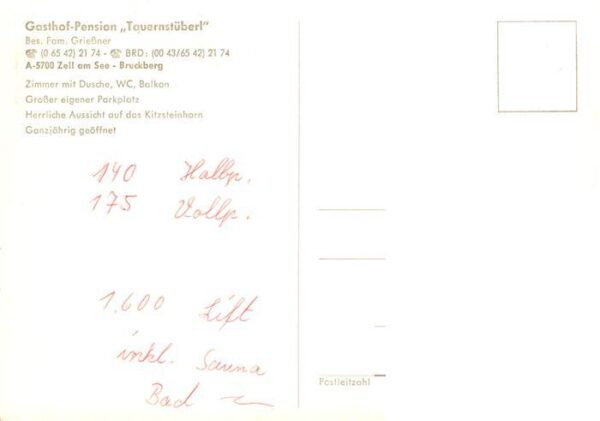 Gasthof-Pension „Tauernstüberl"
Bes. Fam. Grießner
☎ (0 65 42) 21 74 - ☎ BRD: (00 43/65 42) 21 74
A-5700 Zell am See - Bruckberg
Zimmer mit Dusche, WC, Balkon
Großer eigener Parkplatz
Herrliche Aussicht auf das Kitzsteinhorn
Ganzjährig geöffnet
140 Halbp.
175 Vollp.
1.600 Lift
inkl. Sauna
Bad
Postleitzahl